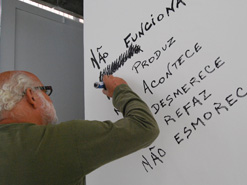 NÃO FUNCIONA
PRODUZ
ACONTECE
DESMERECE
REFAZ
NÃO ESMOREC